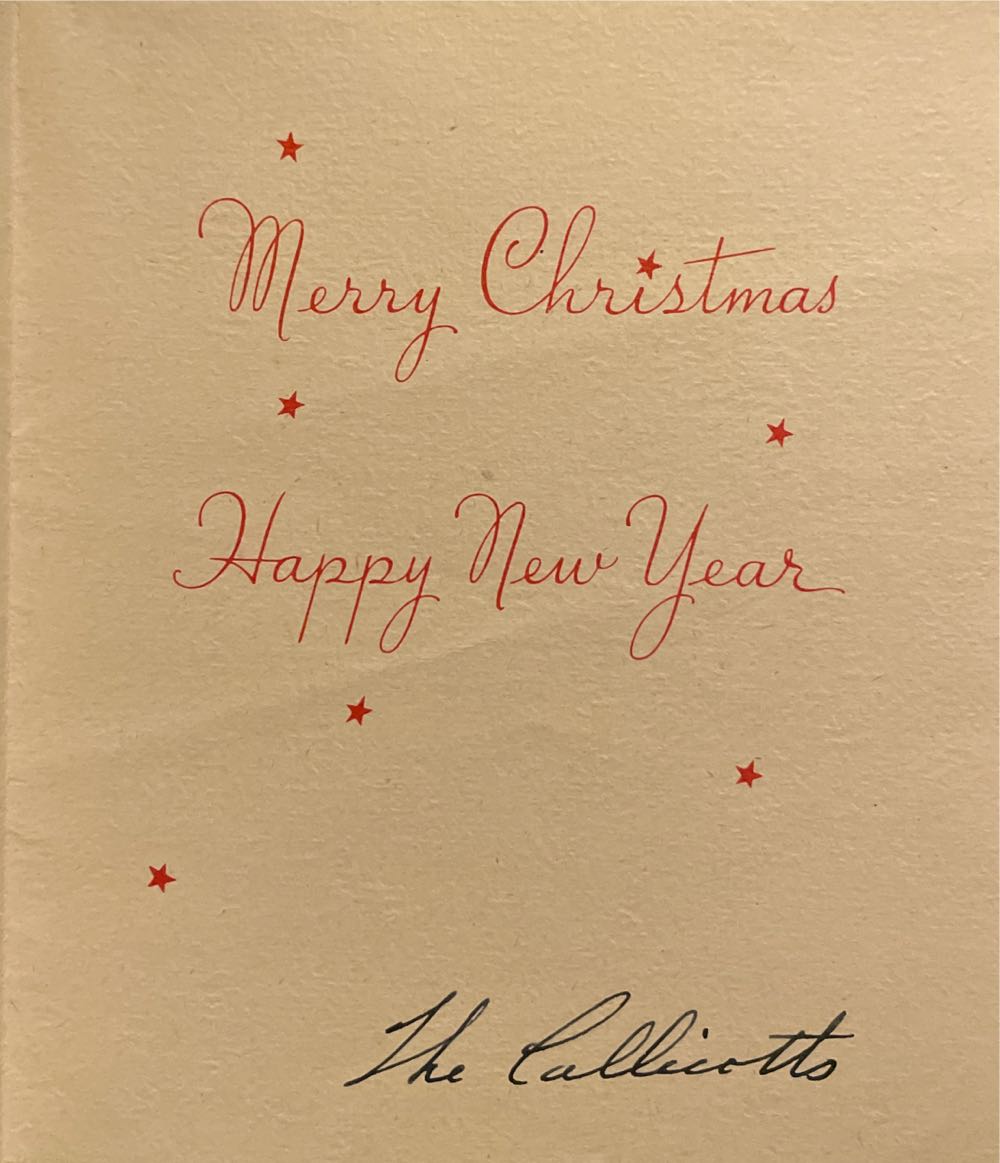 Merry Christmas
Happy New Year
The Callicotts